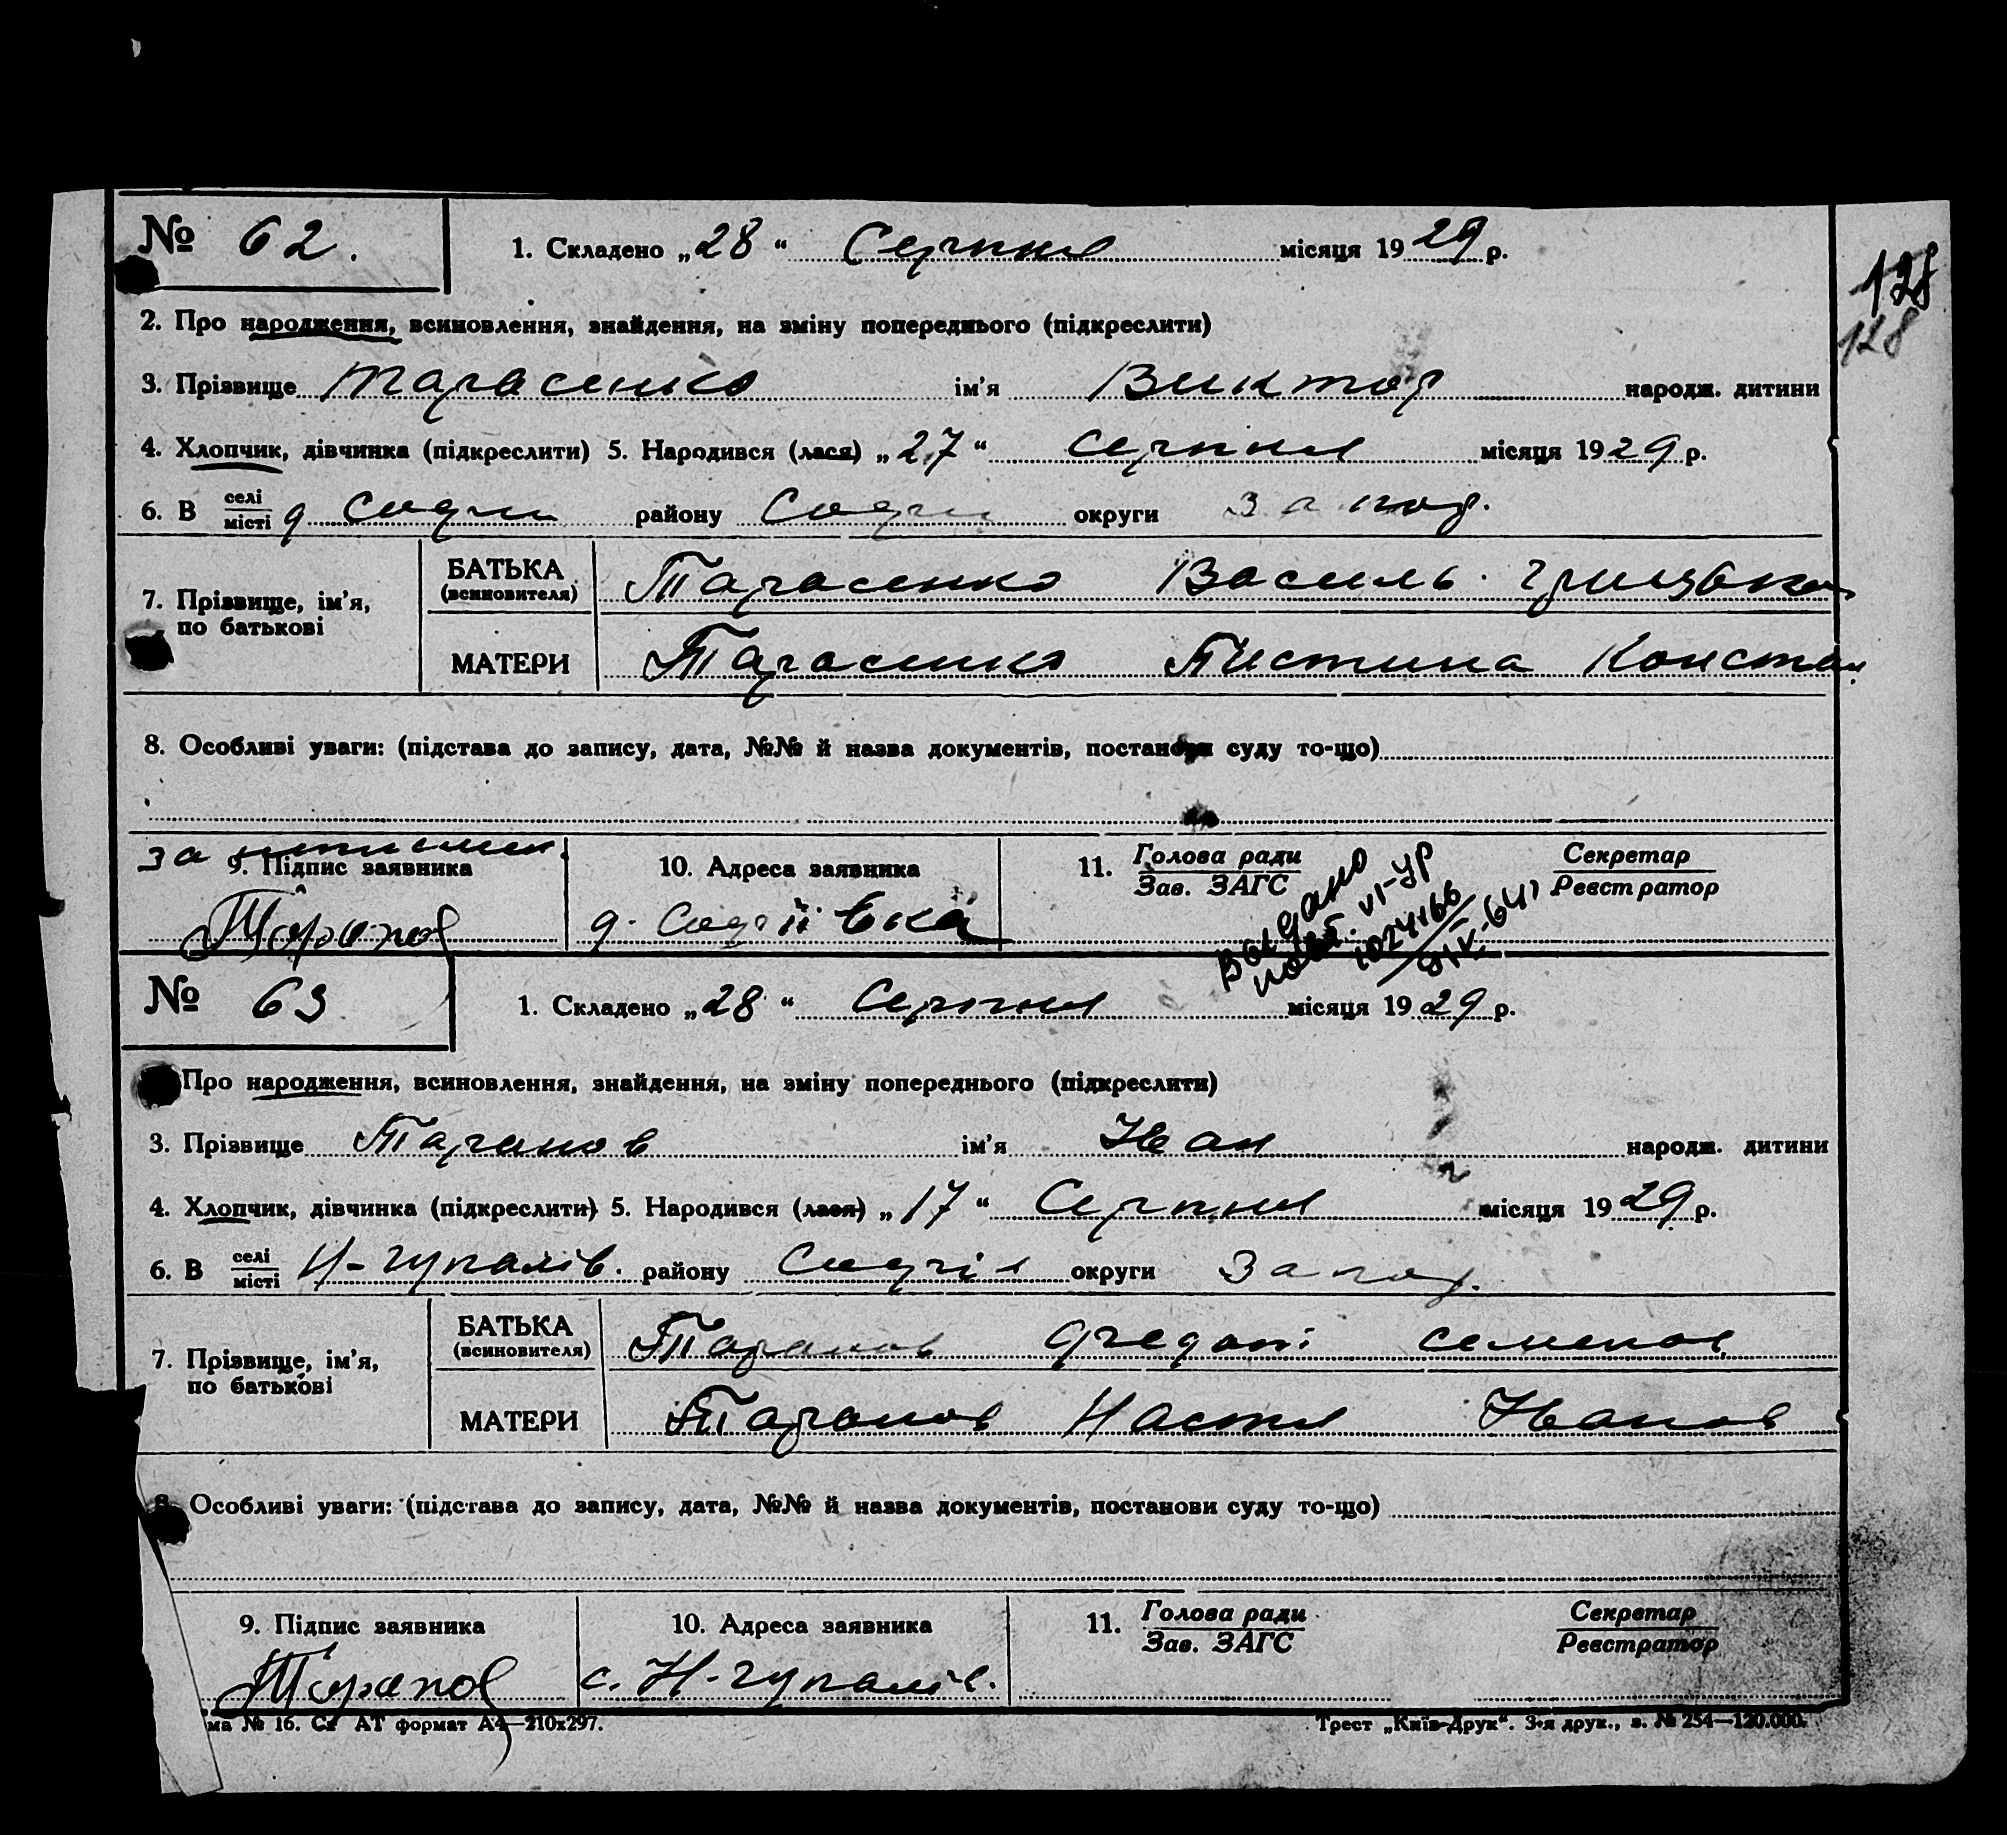 № 62.
1. Складено „28“ Серпня місяця 1929 р.
128
128
2. Про народження, всиновлення, знайдення, на зміну попереднього (підкреслити)
3. Прізвище Тарасенко ім'я Виктор народж. дитини
4. Хлопчик, дівчинка (підкреслити) 5. Народився (лася) „27“ серпня місяця 1929 р.
6. В селі/місті району округи Запор.
7. Прізвище, ім'я, по батькові
БАТЬКА (всиновителя) Тарасенко Василь
МАТЕРИ Тарасенко Пистина Констан
8. Особливі уваги: (підстава до запису, дата, №№ й назва документів, постанови суду то-що)
за
9. Підпис заявника
Таранов
10. Адреса заявника
11. Голова ради / Зав. ЗАГС
Секретар / Реєстратор
Выдано
повт. VI-УР
1024166
№ 63
1. Складено „28“ Серпня місяця 1929 р.
Про народження, всиновлення, знайдення, на зміну попереднього (підкреслити)
3. Прізвище Таранов ім'я Иван народж. дитини
4. Хлопчик, дівчинка (підкреслити) 5. Народився (лася) „17“ Серпня місяця 1929 р.
6. В селі/місті Н-гупалів. району округи Запор.
7. Прізвище, ім'я, по батькові
БАТЬКА (всиновителя) Таранов семенов
МАТЕРИ Таранов Настя Иванов
8. Особливі уваги: (підстава до запису, дата, №№ й назва документів, постанови суду то-що)
9. Підпис заявника
Таранов
10. Адреса заявника
с. Н-гупалів.
11. Голова ради / Зав. ЗАГС
Секретар / Реєстратор
ма № 16. Ск АТ формат А4—210х297.
Трест „Київ-Друк“. 3-я друк., з. № 254—120.000.